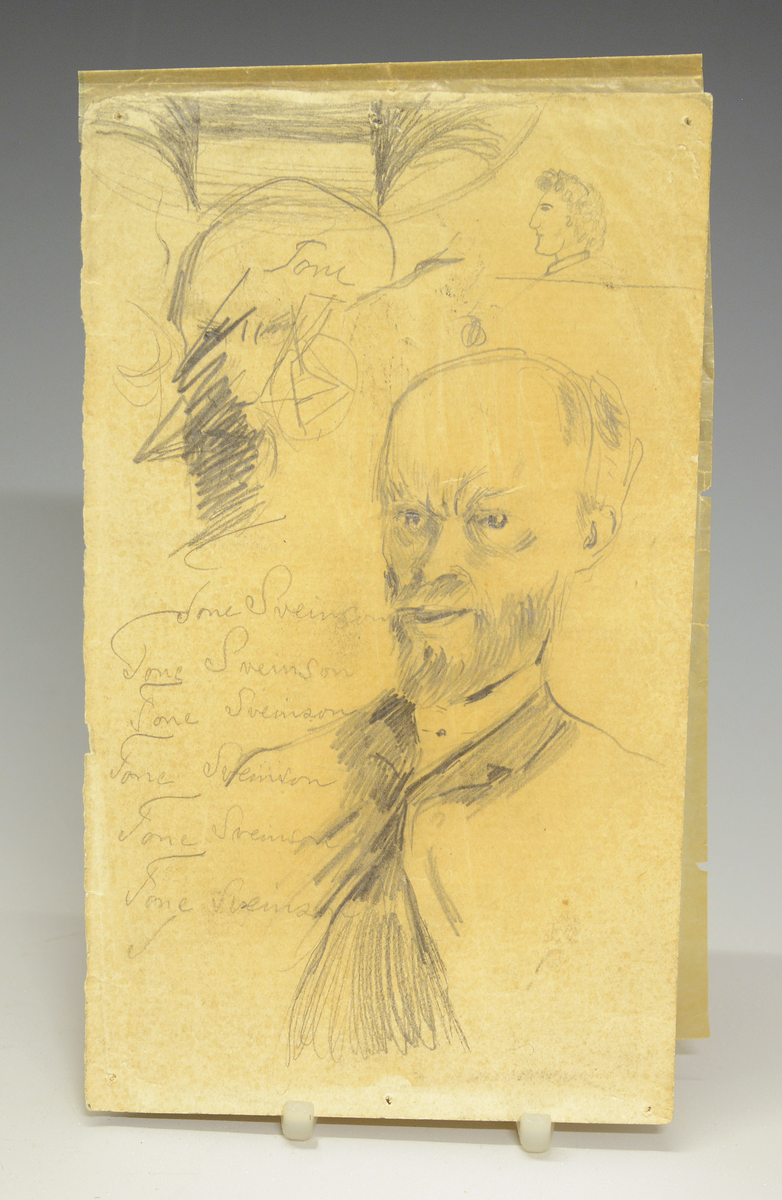 Tone
Tone Sveinson
Tone Sveinson
Tone Sveinson
Tone Sveinson
Tone Sveinson
Tone Sveinson